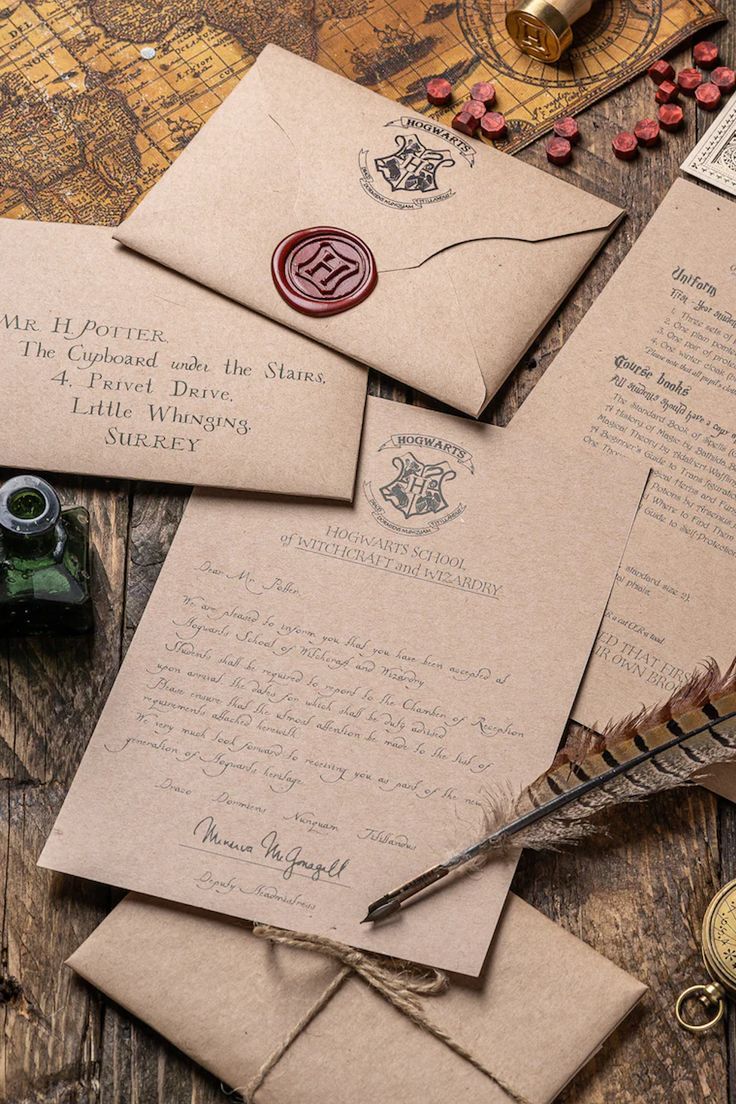 HOGWARTS
H
MR. H. POTTER,
The Cupboard under the Stairs,
4, Privet Drive,
Little Whinging,
SURREY
HOGWARTS
H
HOGWARTS SCHOOL
of WITCHCRAFT and WIZARDRY
Dear Mr. Potter,
We are pleased to inform you that you have been accepted at
Hogwarts School of Witchcraft and Wizardry.
Students shall be required to report to the Chamber of Reception
upon arrival, the dates for which shall be duly advised.
Please ensure that the utmost attention be made to the list of
requirements attached herewith.
We very much look forward to receiving you as part of the new
generation of Hogwarts heritage.
Draco Dormiens Nunquam Titillandus
Minerva McGonagall
Deputy Headmistress
Uniform
First-Year Student
1. Three sets of
2. One plain pointed
3. One pair of prote
4. One winter cloak
Please note that all pupil's cloth
Course books
All students should have a copy of
The Standard Book of Spells
A History of Magic by Bathilda
Magical Theory by Adalbert Waffling
A Beginner's Guide to Transfiguration
One Thou
Herbs and Fun
Potions by Arsenius
and Where to Find Them
Guide to Self-Protection
standard size 2),
tal phials.
R a CAT OR a toad.
D THAT FIRST
IR OWN BRO